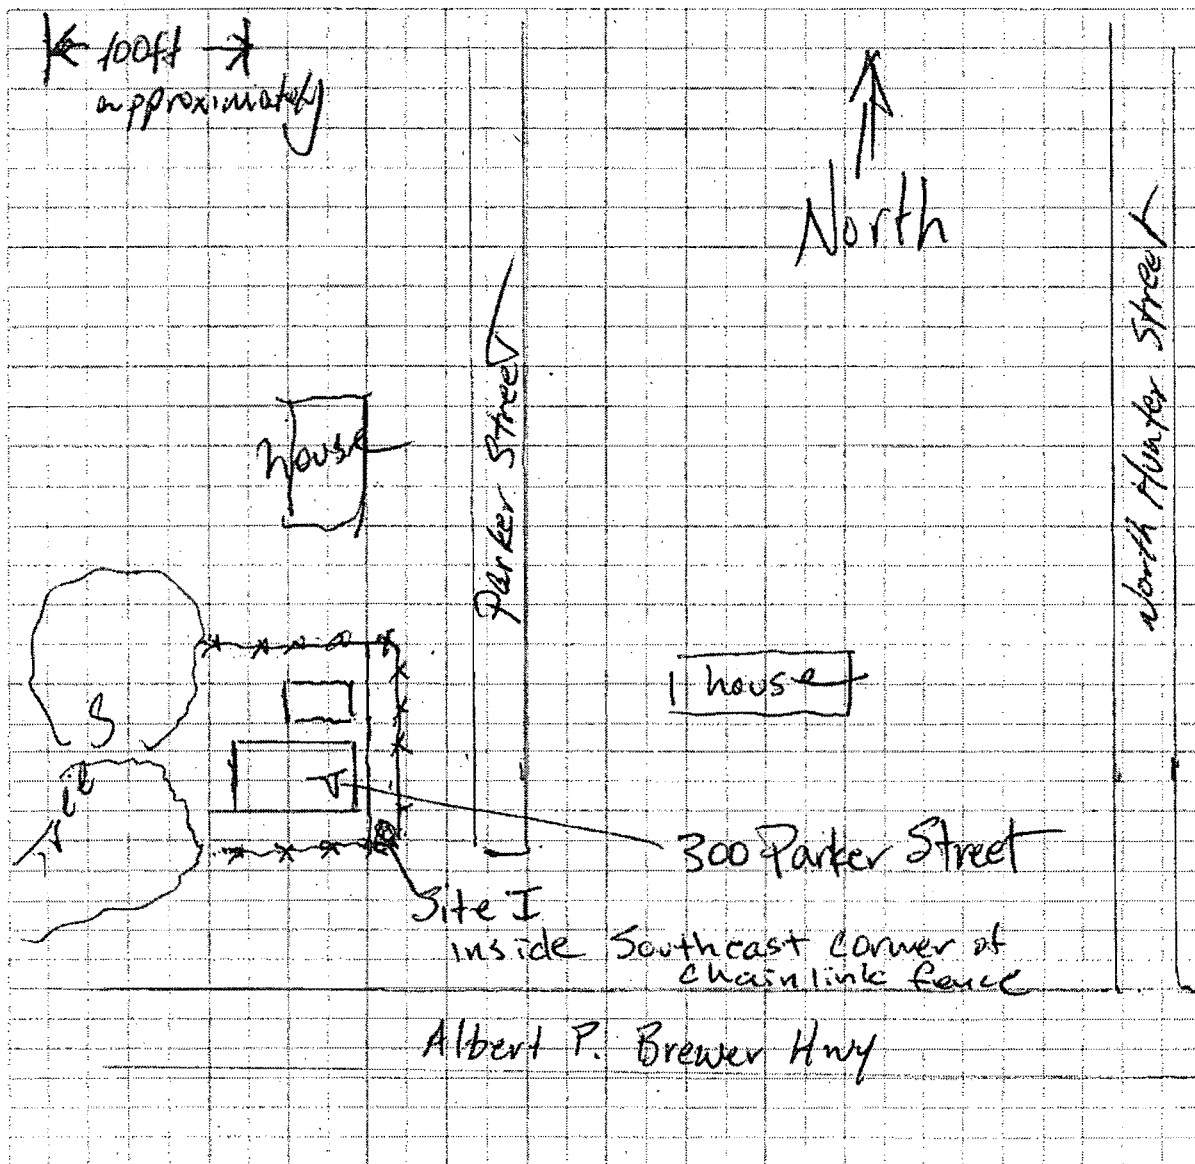 100ft
approximately
North
North Hunter Street
Parker Street
house
house
Trees
300 Parker Street
Site I
inside Southeast corner of
chainlink fence
Albert P. Brewer Hwy